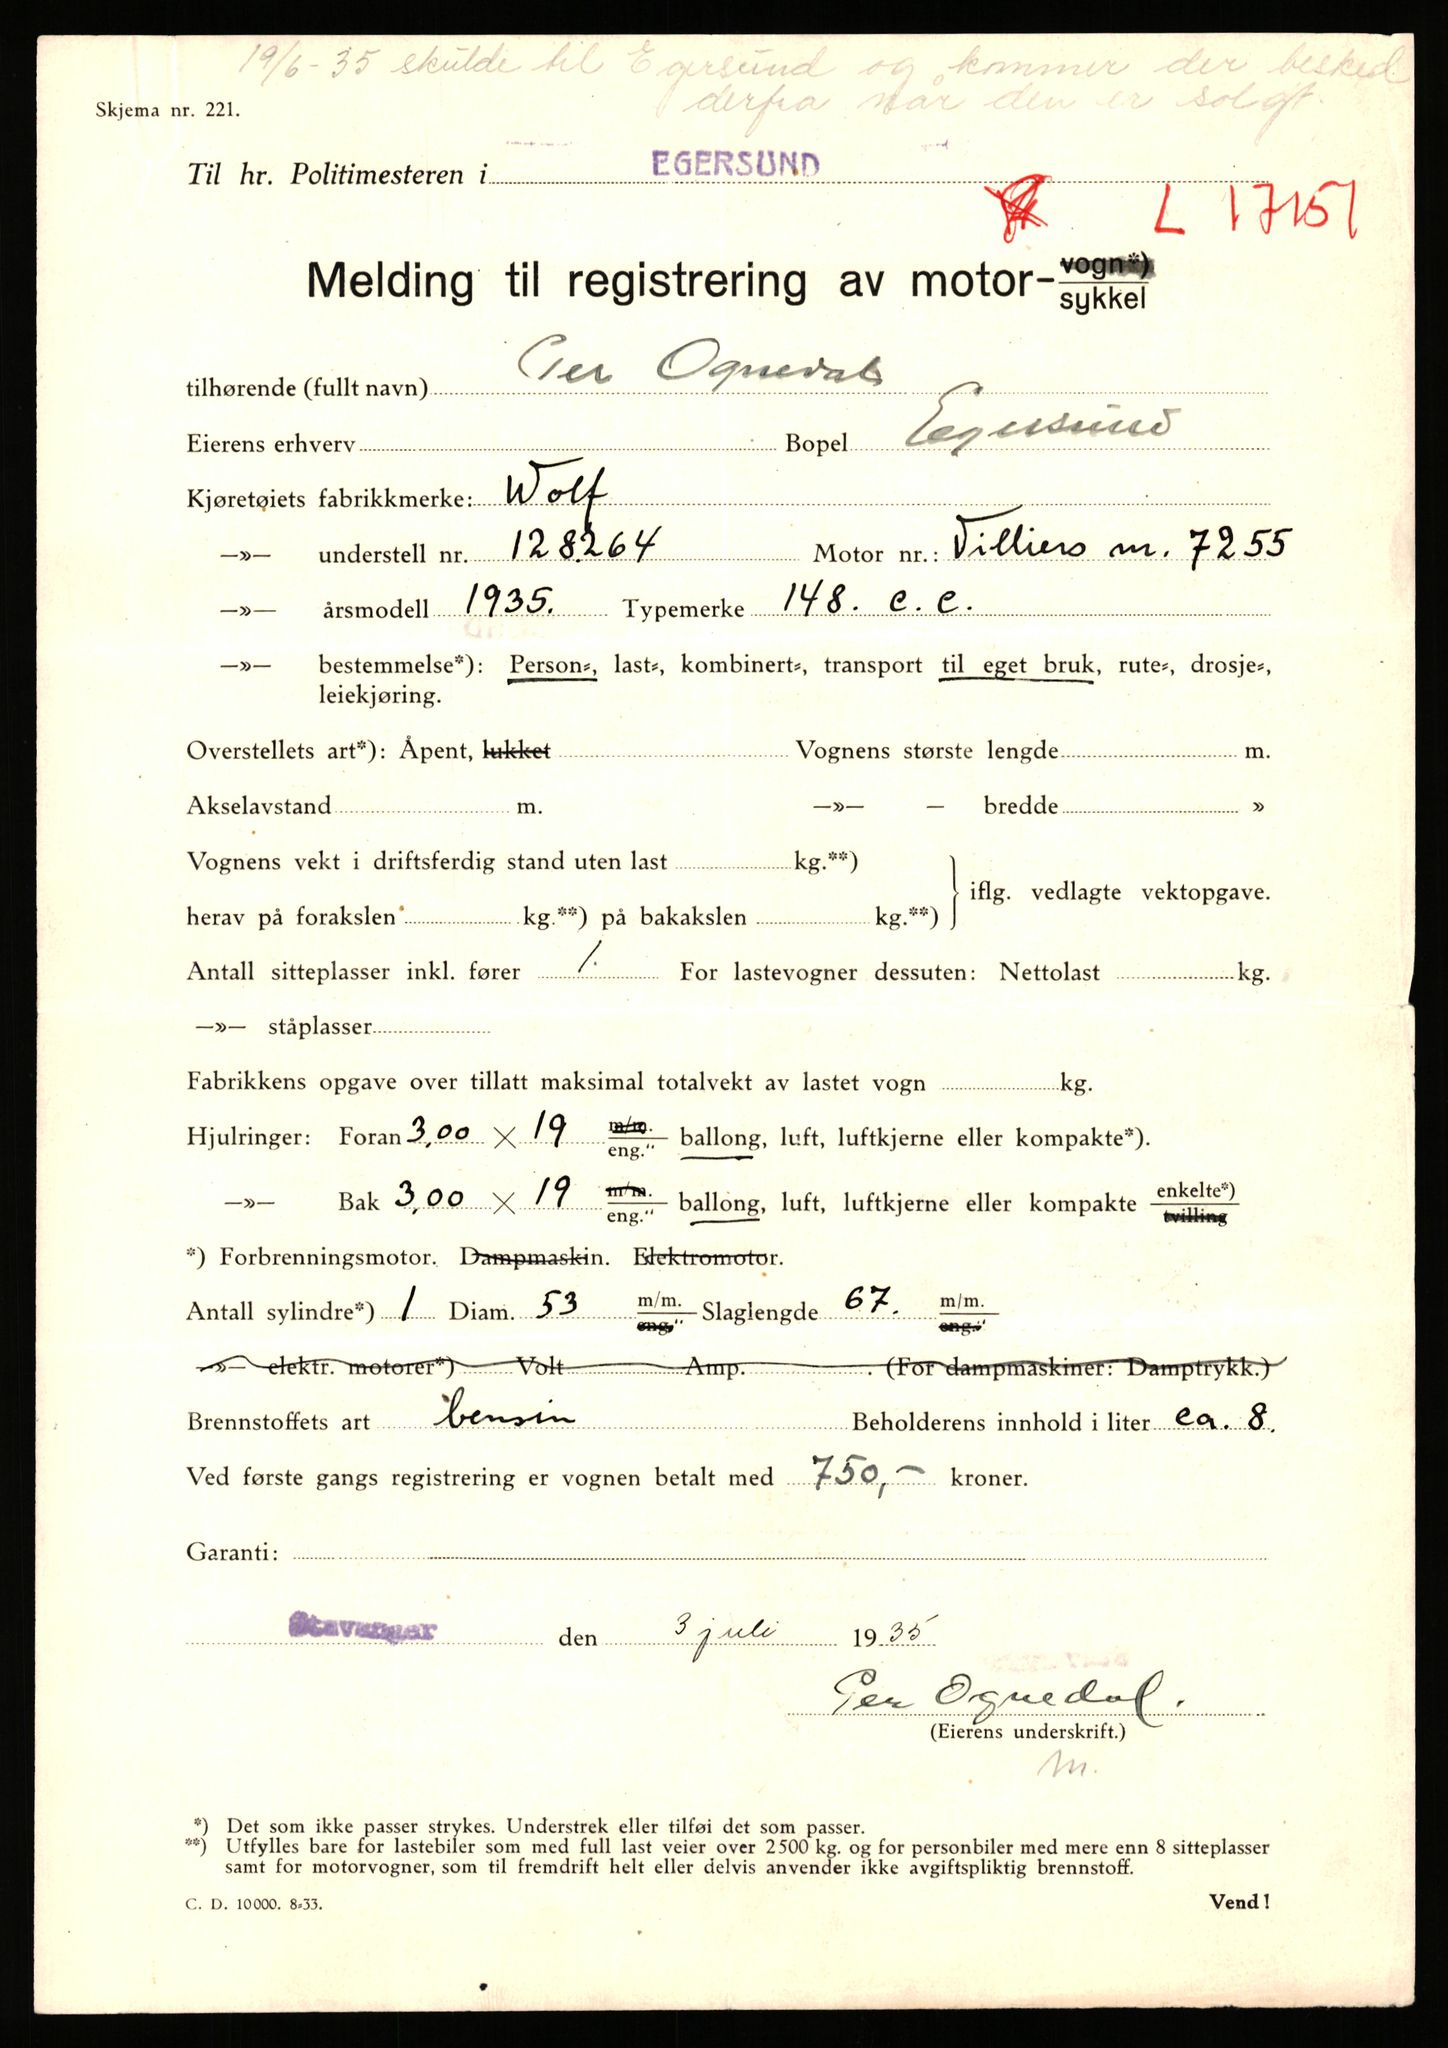 19/6-35 skulde til Egersund og kommer der besked
derfra når den er solgt.
Skjema nr. 221.
Til hr. Politimesteren i EGERSUND
L 17151
Melding til registrering av motor-vogn*)
sykkel
tilhørende (fullt navn) Per Ognedal
Eierens erhverv Bopel Egersund
Kjøretøiets fabrikkmerke: Wolf
—»— understell nr. 128264 Motor nr.: Villiers m. 7255
—»— årsmodell 1935. Typemerke 148. c. c.
—»— bestemmelse*): Person-, last-, kombinert-, transport til eget bruk, rute-, drosje-,
leiekjøring.
Overstellets art*): Åpent, lukket Vognens største lengde m.
Akselavstand m. —»— — bredde »
Vognens vekt i driftsferdig stand uten last kg.**)
iflg. vedlagte vektopgave.
herav på forakslen kg.**) på bakakslen kg.**)
Antall sitteplasser inkl. fører 1. For lastevogner dessuten: Nettolast kg.
—»— ståplasser
Fabrikkens opgave over tillatt maksimal totalvekt av lastet vogn kg.
Hjulringer: Foran 3,00 × 19 m/m. eng." ballong, luft, luftkjerne eller kompakte*).
—»— Bak 3,00 × 19 m/m. eng." ballong, luft, luftkjerne eller kompakte enkelte*) tvilling
*) Forbrenningsmotor. Dampmaskin. Elektromotor.
Antall sylindre*) 1 Diam. 53 m/m. eng." Slaglengde 67. m/m. eng."
—»— elektr. motorer*) Volt Amp. . (For dampmaskiner: Damptrykk.)
Brennstoffets art bensin Beholderens innhold i liter ca. 8.
Ved første gangs registrering er vognen betalt med 750,- kroner.
Garanti:
Stavanger den 3 juli 1935
Per Ognedal.
(Eierens underskrift.)
m.
*) Det som ikke passer strykes. Understrek eller tilføi det som passer.
**) Utfylles bare for lastebiler som med full last veier over 2500 kg. og for personbiler med mere enn 8 sitteplasser
samt for motorvogner, som til fremdrift helt eller delvis anvender ikke avgiftspliktig brennstoff.
C. D. 10000. 8-33. Vend!